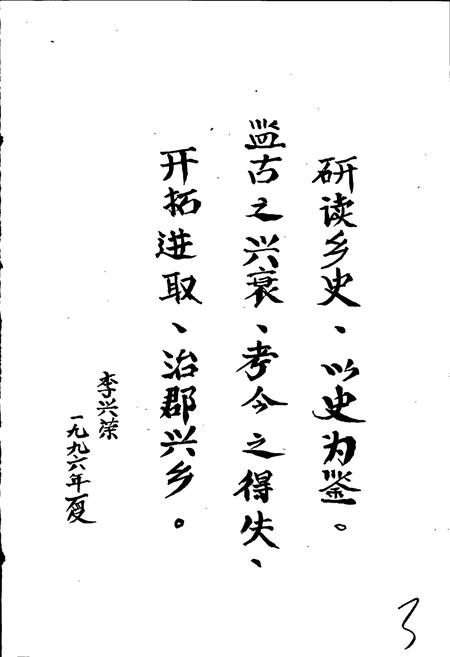 研读乡史、以史为鉴。
监古之兴衰、考今之得失、
开拓进取、治郡兴乡。
李兴荣
一九九六年夏
3